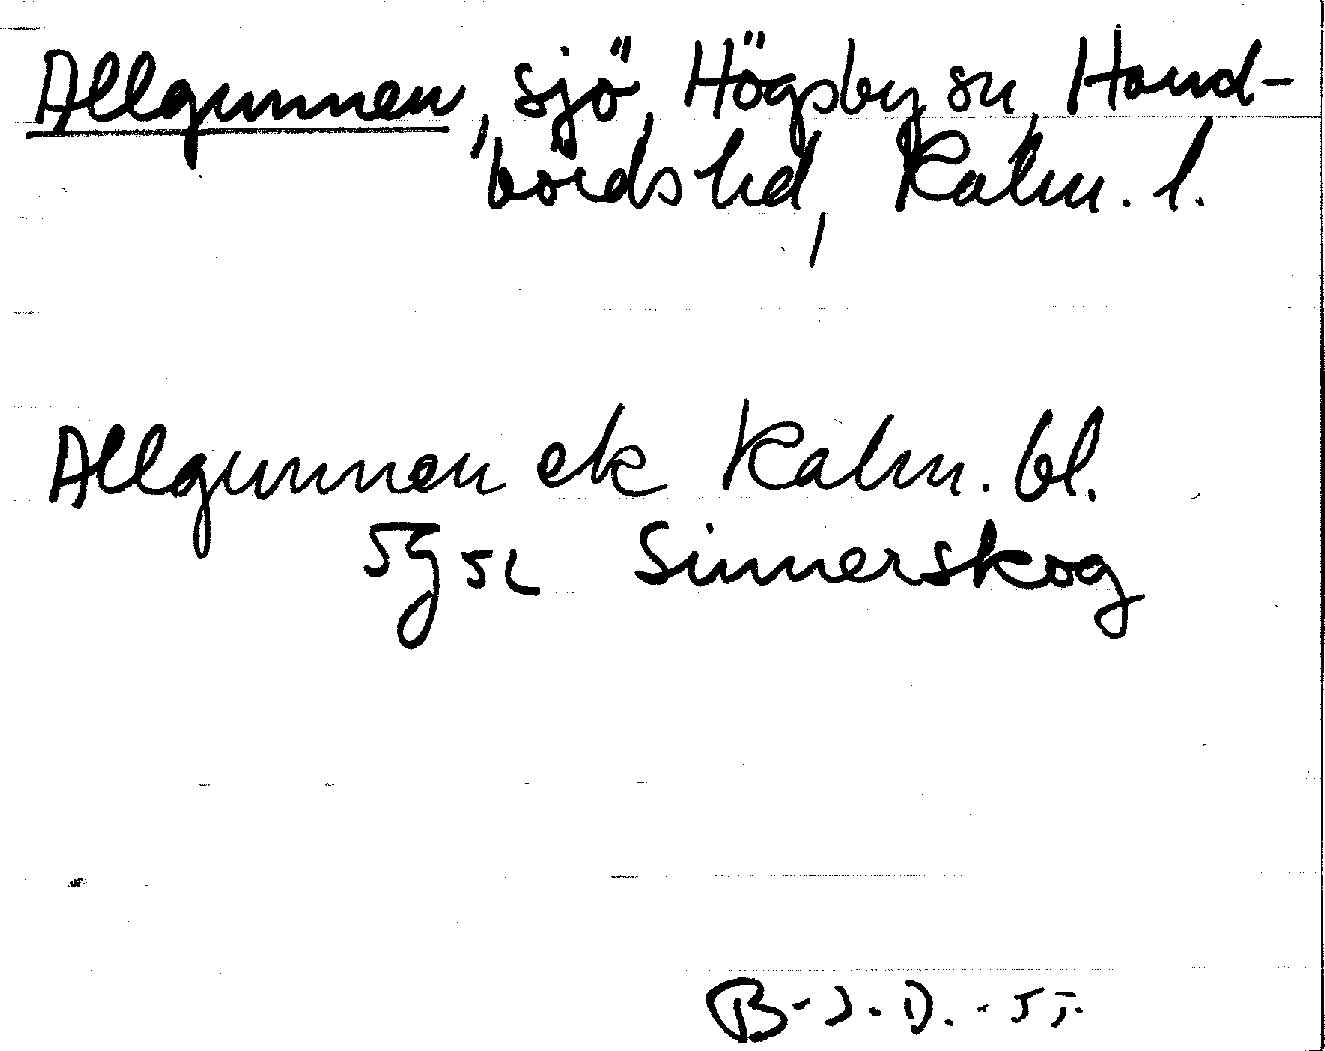 Allgunnen, sjö, Högsby sn, Hand-
börds hd, Kalm. l.
Allgunnen ek Kalm. bl.
5g SV Sinnerskog
B-J.D. -55.